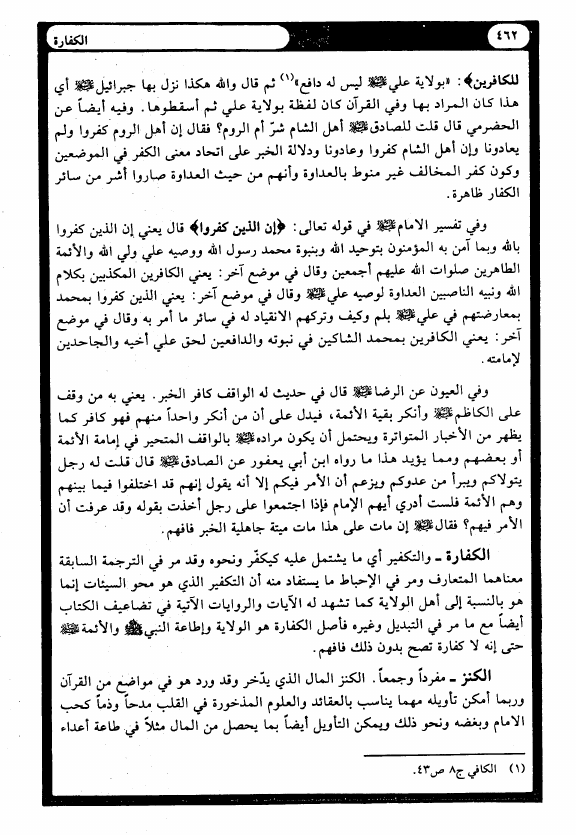 ٤٦٢
الكفارة
للكافرين﴾: «بولاية علي ﷺ ليس له دافع»(١) ثم قال والله هكذا نزل بها جبرائيل ﷺ أي
هذا كان المراد بها وفي القرآن كان لفظة بولاية علي ثم أسقطوها. وفيه أيضاً عن
الحضرمي قال قلت للصادق ﷺ أهل الشام شرّ أم الروم؟ فقال إن أهل الروم كفروا ولم
يعادونا وإن أهل الشام كفروا وعادونا ودلالة الخبر على اتحاد معنى الكفر في الموضعين
وكون كفر المخالف غير منوط بالعداوة وأنهم من حيث العداوة صاروا أشر من سائر
الكفار ظاهرة.
وفي تفسير الامام ﷺ في قوله تعالى: ﴿إن الذين كفروا﴾ قال يعني إن الذين كفروا
بالله وبما آمن به المؤمنون بتوحيد الله وبنبوة محمد رسول الله ووصيه علي ولي الله والأئمة
الطاهرين صلوات الله عليهم أجمعين وقال في موضع آخر: يعني الكافرين المكذبين بكلام
الله ونبيه الناصبين العداوة لوصيه علي ﷺ وقال في موضع آخر: يعني الذين كفروا بمحمد
بمعارضتهم في علي ﷺ بلم وكيف وتركهم الانقياد له في سائر ما أمر به وقال في موضع
آخر: يعني الكافرين بمحمد الشاكين في نبوته والدافعين لحق علي أخيه والجاحدين
لإمامته.
وفي العيون عن الرضا ﷺ قال في حديث له الواقف كافر الخبر. يعني به من وقف
على الكاظم ﷺ وأنكر بقية الأئمة، فيدل على أن من أنكر واحداً منهم فهو كافر كما
يظهر من الأخبار المتواترة ويحتمل أن يكون مراده ﷺ بالواقف المتحير في إمامة الأئمة
أو بعضهم ومما يؤيد هذا ما رواه ابن أبي يعفور عن الصادق ﷺ قال قلت له رجل
يتولاكم ويبرأ من عدوكم ويزعم أن الأمر فيكم إلا أنه يقول إنهم قد اختلفوا فيما بينهم
وهم الأئمة فلست أدري أيهم الإمام فإذا اجتمعوا على رجل أخذت بقوله وقد عرفت أن
الأمر فيهم؟ فقال ﷺ إن مات على هذا مات ميتة جاهلية الخبر فافهم.
الكفارة ـ والتكفير أي ما يشتمل عليه كيكفّر ونحوه وقد مر في الترجمة السابقة
معناهما المتعارف ومر في الإحباط ما يستفاد منه أن التكفير الذي هو محو السيئات إنما
هو بالنسبة إلى أهل الولاية كما تشهد له الآيات والروايات الآتية في تضاعيف الكتاب
أيضاً مع ما مر في التبديل وغيره فأصل الكفارة هو الولاية وإطاعة النبي ﷺ والأئمة ﷺ
حتى إنه لا كفارة تصح بدون ذلك فافهم.
الكنز ـ مفرداً وجمعاً. الكنز المال الذي يدّخر وقد ورد هو في مواضع من القرآن
وربما أمكن تأويله مهما يناسب بالعقائد والعلوم المذخورة في القلب مدحاً وذماً كحب
الامام وبغضه ونحو ذلك ويمكن التأويل أيضاً بما يحصل من المال مثلاً في طاعة أعداء
(١) الكافي ج٨ ص٤٣.